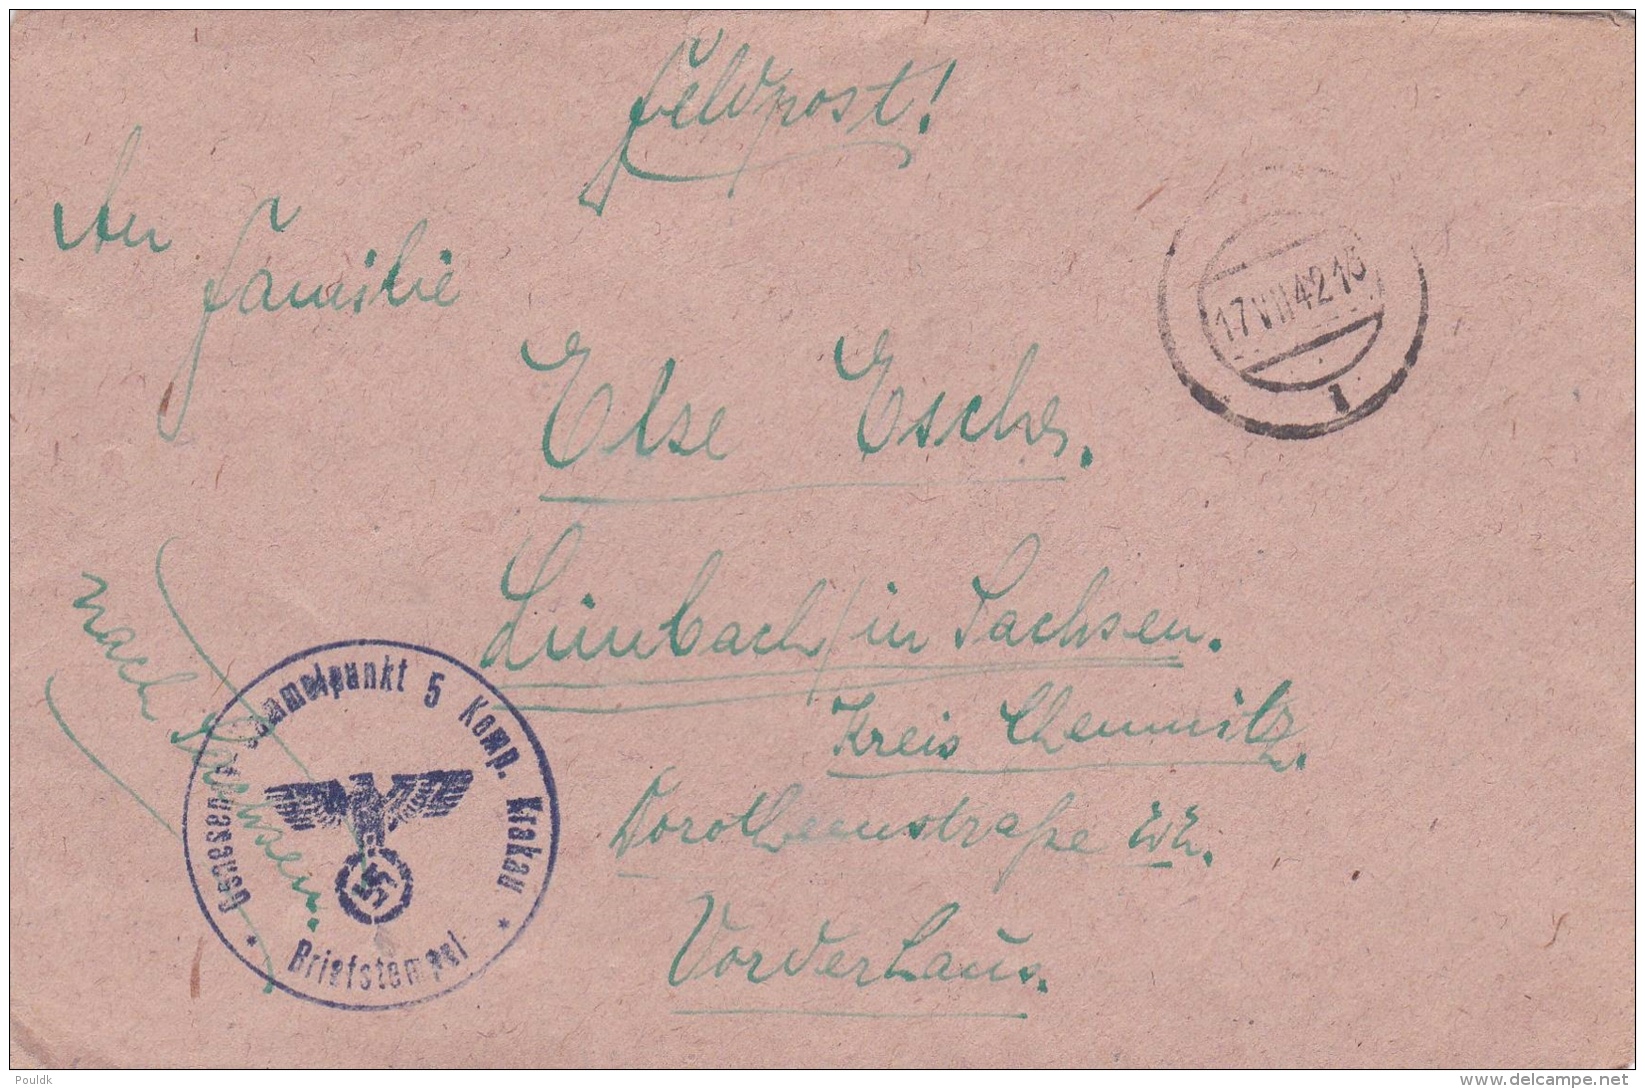 Feldpost!
An
Familie
Else Escher.
Limbach/in Sachsen.
Kreis Chemnitz.
Dorotheenstraße
Vorderhaus.
nach Sachsen.
17 VII 42 15
1
Genesendensammelpunkt 5 Komp. Krakau
* Briefstempel *
Pouldk
delcampe.net